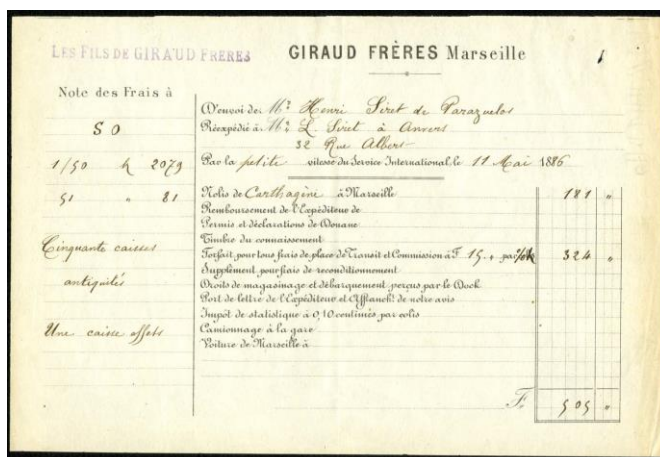 LES FILS DE GIRAUD FRERES
GIRAUD FRÈRES Marseille
1
Note des Frais à
S O
1/50 k 2079
51 " 81
Cinquante caisses
antiquités
Une caisse effets
D'envoi de Mr. Henri Siret de Parazuelos
Réexpédié à Mr. L. Siret à Anvers
32 Rue Albert
Par la petite vitesse du Service International, le 11 Mai 1886
Nolis de Carthagène à Marseille 181 "
Remboursement de l'Expéditeur de
Permis et déclarations de Douane
Timbre du connaissement
Forfait, pour tous frais de place de Transit et Commission à F. 15 " par %k 324 "
Supplément pour frais de reconditionnement
Droits de magasinage et débarquement perçus par le Dock
Port de lettre de l'Expéditeur et Affranch.t de notre avis
Impôt de statistique à 0,10 centimes par colis
Camionnage à la gare
Voiture de Marseille à
F. 505 "